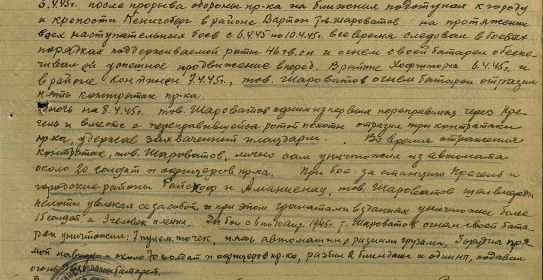 5.4.45г. после прорыва обороны пр-ка на ближних подступах к городу
и крепости Кенигсберг в районе Вартен т-щ Шароватов на протяжении
всех наступательных боев с 6.4.45 по 10.4.45г. все время следовал в боевых
порядках поддерживаемой роты и огнем своей батареи обеспе-
чивал ей успешное продвижение вперед. В районе 6.4.45г. и
в районе 7.4.45г., тов. Шароватов огнем батареи отразил
пять контратак пр-ка.
Ночь на 8.4.45г. тов. Шароватов одним из первых переправился через Пре-
гель и вместе с переправившейся ротой пехоты отразил три контратаки
пр-ка, удержав захваченный плацдарм. Во время отражения
контратак, тов. Шароватов, лично сам уничтожил из автомата
около 20 солдат и офицеров пр-ка. При бое за станцию Прегель и
городские районы и Амалиенау, тов. Шароватов шел впереди
пехоты увлекая ее за собой и при этом гранатами в зданиях уничтожил более
15 солдат, а 9 человек пленил. За бои с 6 по 1945г. т. Шароватов огнем своей бата-
реи уничтожил: 7 пулем. точек, пять автомашин с разным грузом, 3 орудия пря-
мой наводки и около 70 солдат и офицеров пр-ка, разбил 2 блиндажа и один НП, подавил
огонь батарей.